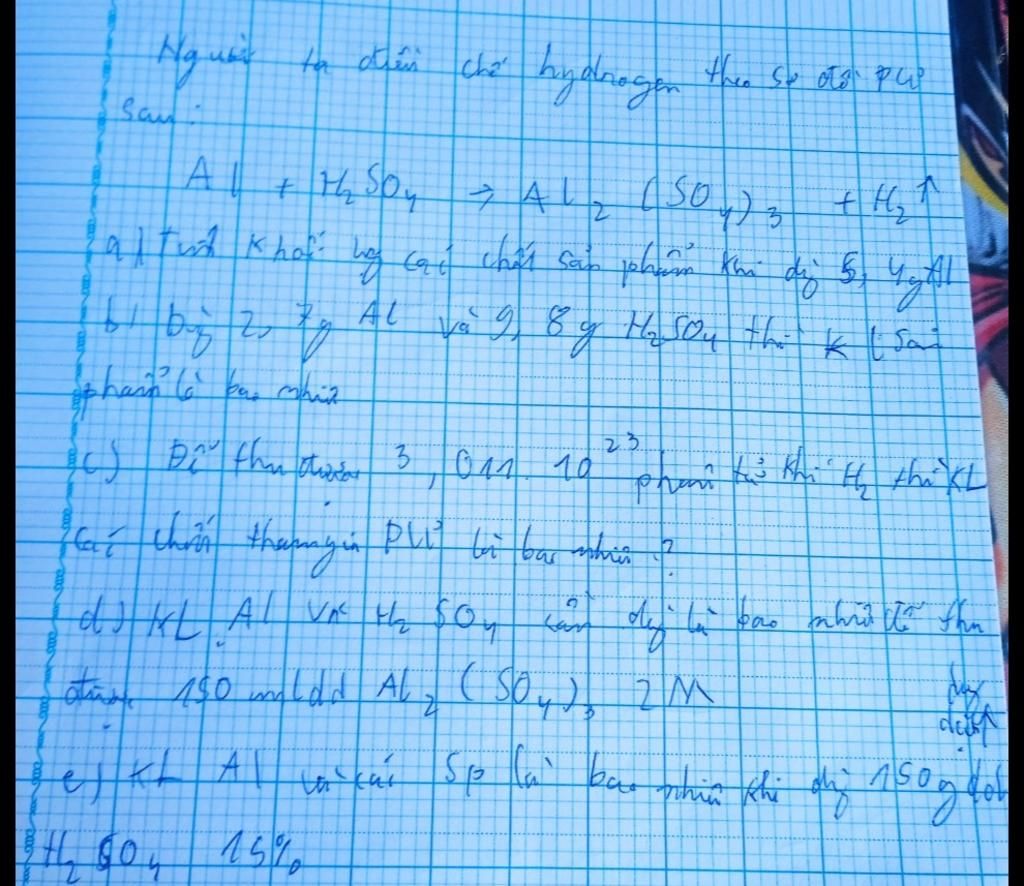 Người ta điều chế hydrogen theo sơ đồ PƯ
sau:
Al + H₂SO₄ → Al₂(SO₄)₃ + H₂↑
a) Tính khối lg các chất sản phẩm khi dg 5,4g Al
b) Dg 2,7g Al và 9,8g H₂SO₄ thì KL sản
phẩm là bao nhiu
c) Để thu được 3,011.10²³ phân tử khí H₂ thì KL
các chất tham gia PƯ là bao nhiu?
d) KL Al và H₂SO₄ cần dg là bao nhiu để thu
được 150 ml dd Al₂(SO₄)₃ 2M
e) KL Al và các sp là bao nhiu khi dg 150g dd
H₂SO₄ 15%